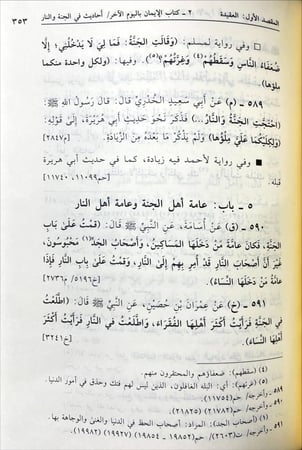 المقصد الأول: العقيدة ٢ - كتاب الإيمان باليوم الآخر/ أحاديث في الجنة والنار ٣٥٣
■ وفي رواية لمسلم: (وَقَالَتِ الجَنَّةُ: فَمَا لِيَ لَا يَدْخُلُنِي إِلَّا
ضُعَفَاءُ النَّاسِ وَسَقَطُهُمْ(٤) وَغِرَّتُهُمْ(٥)). وفيها: (ولكل واحدة منكما
ملؤها).
٥٨٩ - (م) عَنْ أَبِي سَعِيدٍ الخُدْرِيِّ قَالَ: قَالَ رَسُولُ اللهِ ﷺ:
(احْتَجَّتِ الجَنَّةُ وَالنَّارُ...) فَذَكَرَ نَحْوَ حَدِيثِ أَبِي هُرَيْرَةَ، إِلَى قَوْلِهِ:
(وَلِكِلَيْكُمَا عَلَيَّ مِلْؤُهَا) وَلَمْ يَذْكُرْ مَا بَعْدَهُ مِنَ الزِّيَادَةِ. [م٢٨٤٧]
■ وفي رواية لأحمد فيه زيادة، كما في حديث أبي هريرة
قبله. [حم١١٠٩٩، ١١٧٤٠]
٥ - باب: عامة أهل الجنة وعامة أهل النار
٥٩٠ - (ق) عَنْ أُسَامَةَ، عَنِ النَّبِيِّ ﷺ قَالَ: (قُمْتُ عَلَى بَابِ
الجَنَّةِ، فَكَانَ عَامَّةُ مَنْ دَخَلَهَا المَسَاكِينَ، وَأَصْحَابُ الجَدِّ(١) مَحْبُوسُونَ،
غَيْرَ أَنَّ أَصْحَابَ النَّارِ قَدْ أُمِرَ بِهِمْ إِلَى النَّارِ، وَقُمْتُ عَلَى بَابِ النَّارِ فَإِذَا
عَامَّةُ مَنْ دَخَلَهَا النِّسَاءُ). [خ٥١٩٦/ م٢٧٣٦]
٥٩١ - (خ) عَنْ عِمْرَانَ بْنِ حُصَيْنٍ، عَنِ النَّبِيِّ ﷺ قَالَ: (اطَّلَعْتُ
فِي الجَنَّةِ فَرَأَيْتُ أَكْثَرَ أَهْلِهَا الفُقَرَاءَ، وَاطَّلَعْتُ فِي النَّارِ فَرَأَيْتُ أَكْثَرَ
أَهْلِهَا النِّسَاءَ). [خ٣٢٤١]
(٤) (سقطهم): ضعفاؤهم والمحتقرون منهم.
(٥) (غرتهم): أي: البله الغافلون، الذين ليس لهم فتك وحذق في أمور الدنيا.
٥٨٩ - وأخرجه/ حم(١١٧٥٤).
٥٩٠ - وأخرجه/ حم(٢١٧٨٢) (٢١٨٢٥).
(١) (أصحاب الجد): المراد: أصحاب الحظ في الدنيا والغنى والوجاهة بها.
٥٩١ - وأخرجه/ ت(٢٦٠٣)/ حم(١٩٨٥٢ - ١٩٨٥٤) (١٩٩٢٧) (١٩٩٨٢).